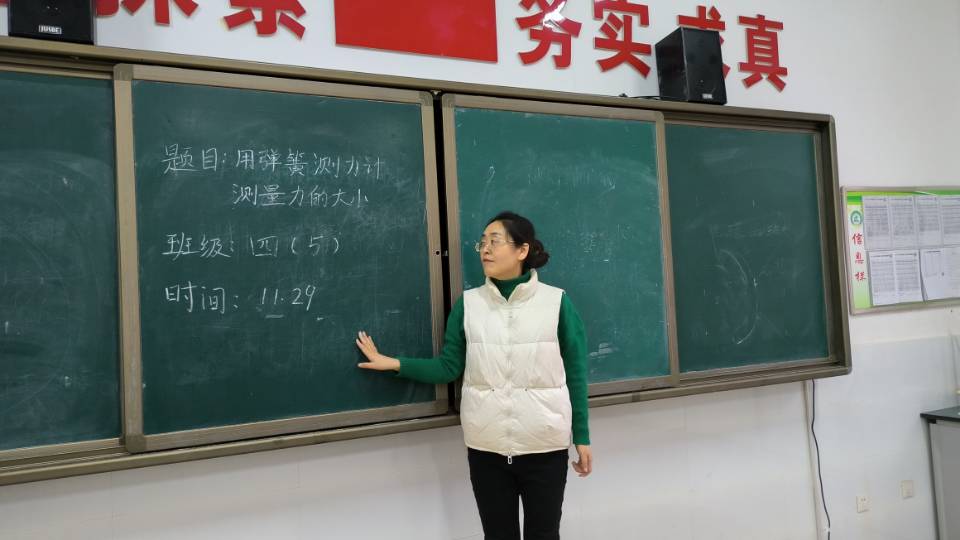 探索 务实 求真
题目：用弹簧测力计
测量力的大小
班级：四（5）
时间：11.29
信息栏